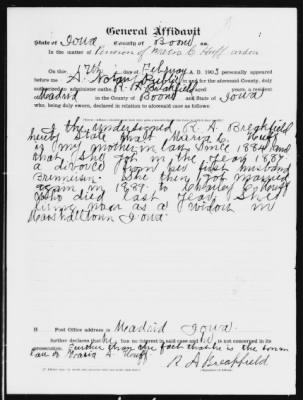 General Affidavit
State of Iowa County of Boone ss.
In the matter of Pension of Maria E. Huff
On this 17th day of A. D. 190 personally appeared
before me A Notary Public in and for the aforesaid County, duly
authorized to administer oaths, R. A. Breakfield aged years, a resident
Madrid in the County of Boone and State of Iowa
who being duly sworn, declared in relation to aforesaid case as follows:
I the undersigned R. A. Breakfield
state that Maria E. Huff
is my mother in law since 1884 and
that She got in the year 1887
a divorce from her first husband
She then got married
again in 1889 to Huff
who died last year She
now as a widow in
Marshalltown Iowa.
Post Office address is Madrid Iowa
further declares that he has no interest in said case and is not concerned in its
prosecution. Further than the fact that he is the son in
law of Maria E. Huff.
R A Breakfield